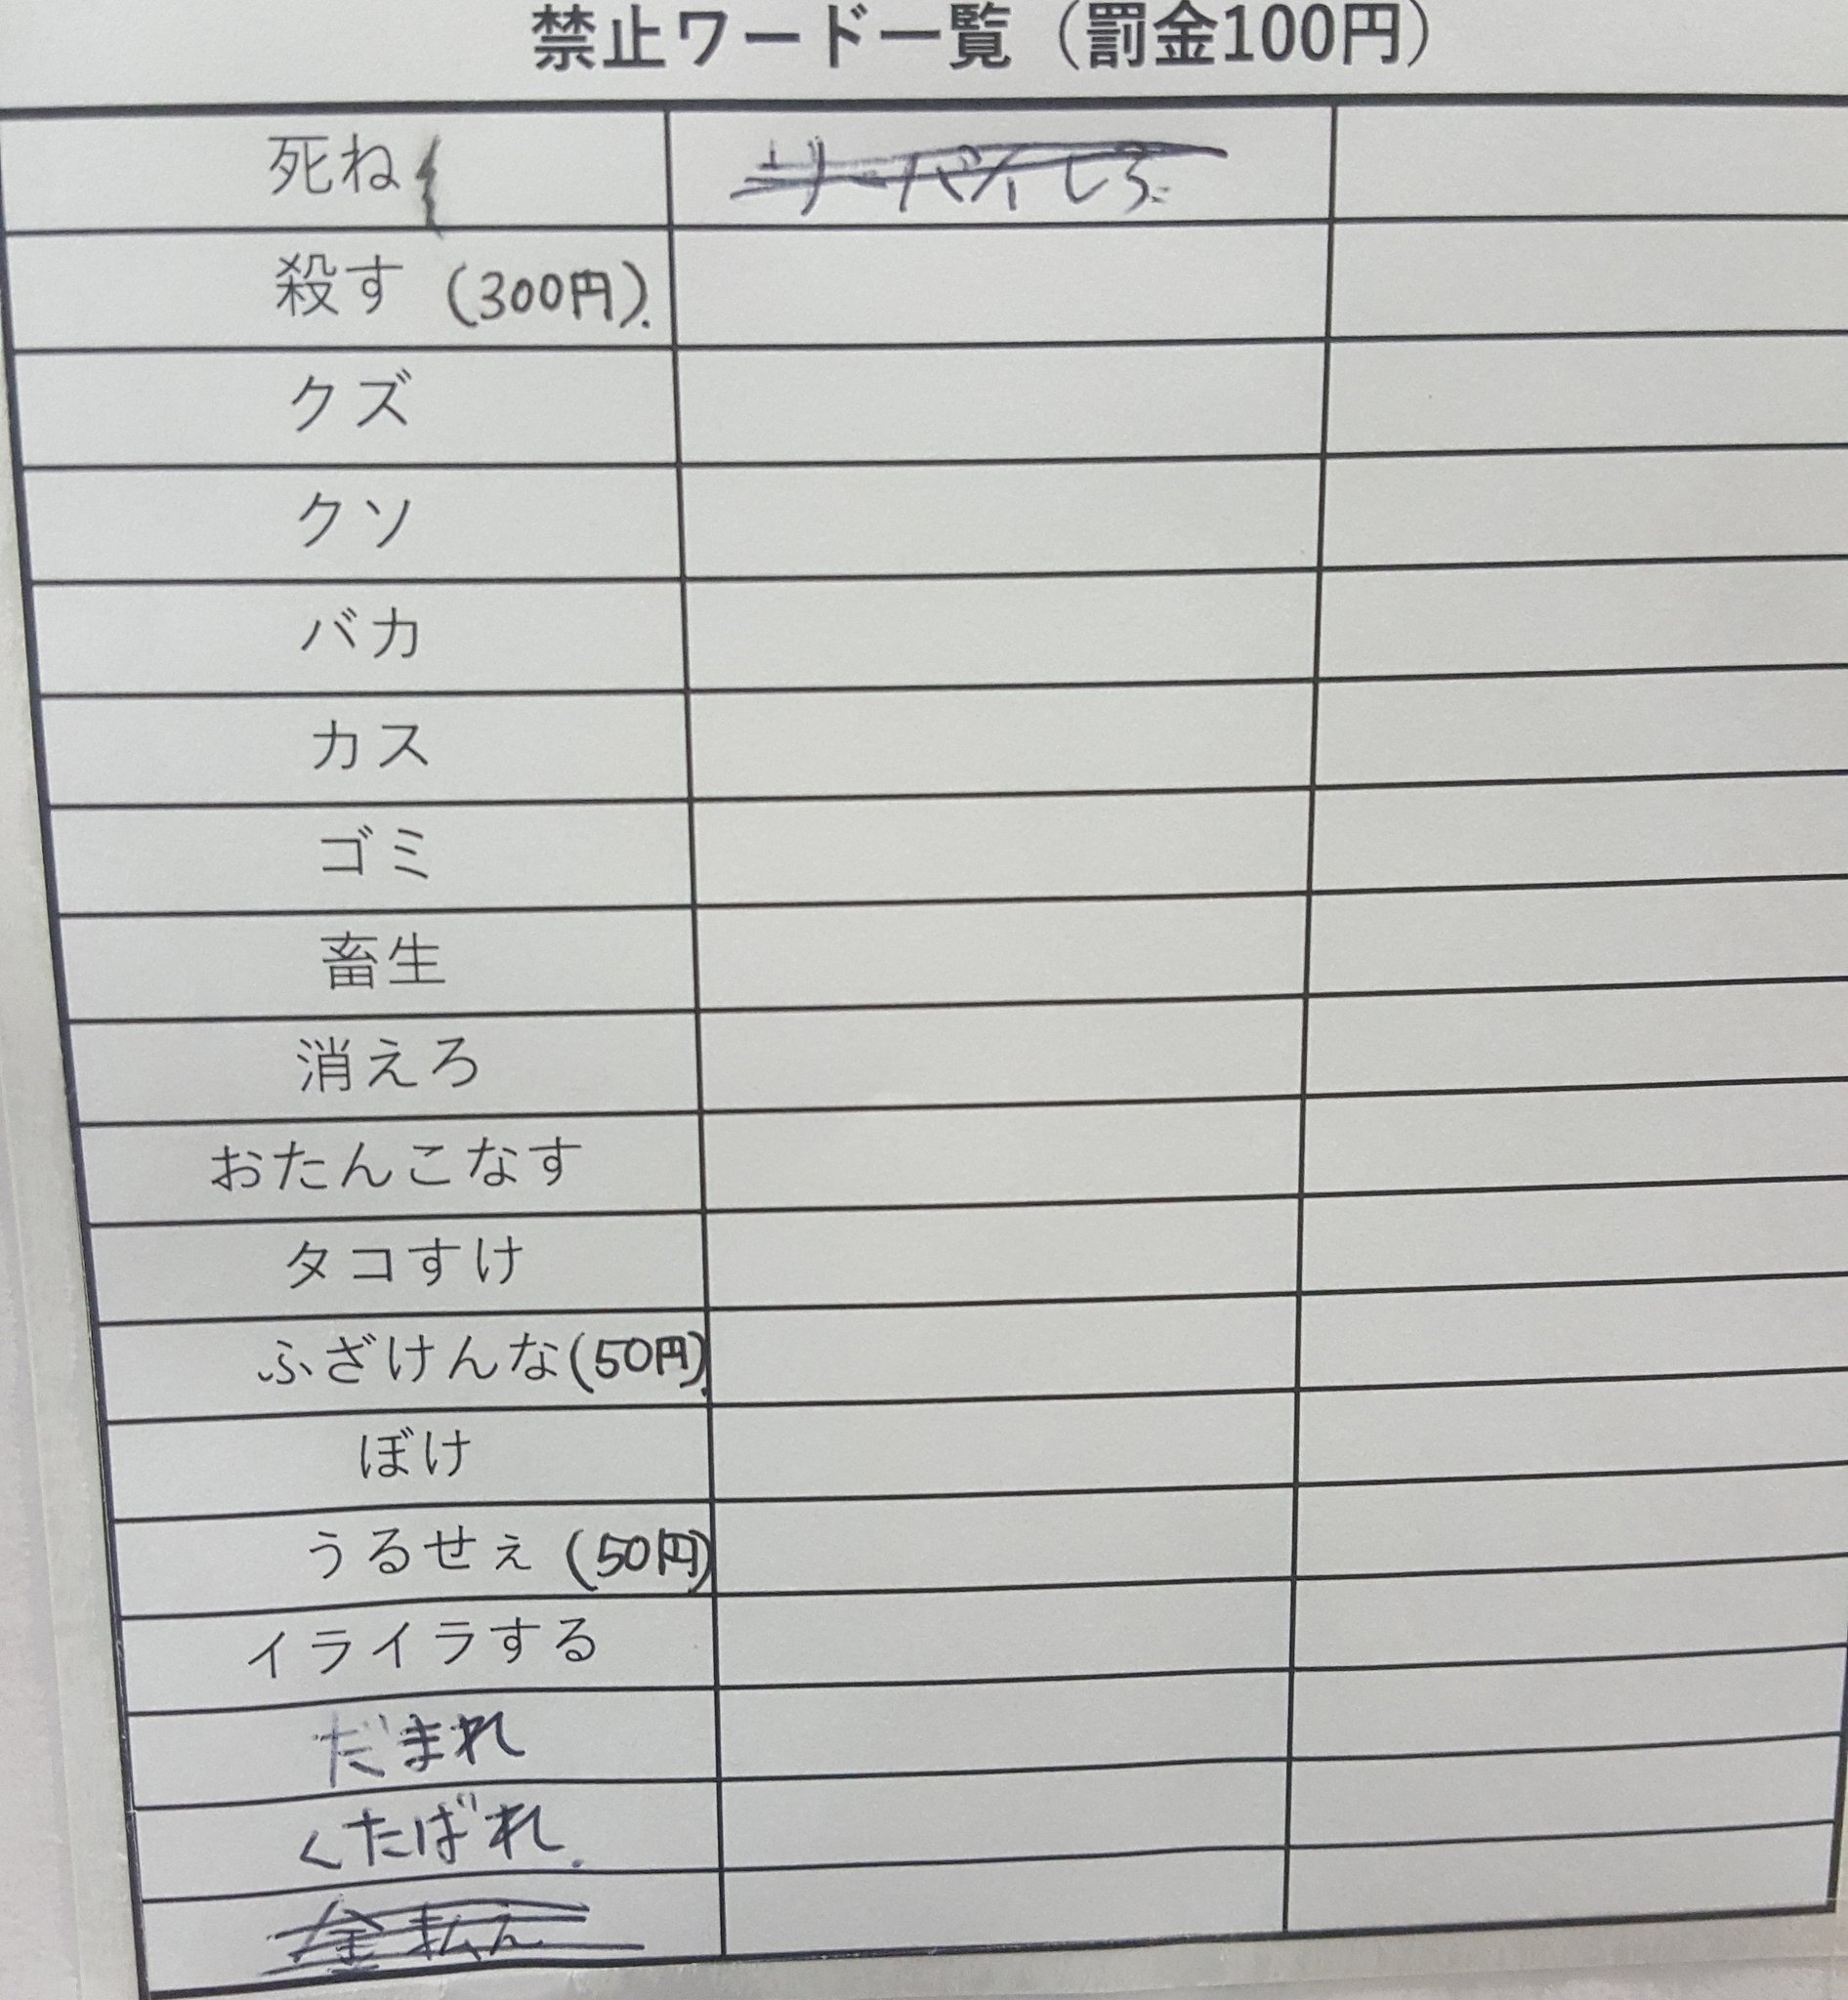 禁止ワード一覧（罰金100円）
死ね
殺す (300円).
クズ
クソ
バカ
カス
ゴミ
畜生
消えろ
おたんこなす
タコすけ
ふざけんな(50円).
ぼけ
うるせぇ (50円)
イライラする
だまれ
くたばれ.
金払え